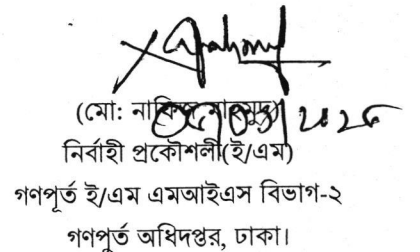 (মো: নাফিজ মাহমুদ)
নির্বাহী প্রকৌশলী(ই/এম)
গণপূর্ত ই/এম এমআইএস বিভাগ-২
গণপুর্ত অধিদপ্তর, ঢাকা।